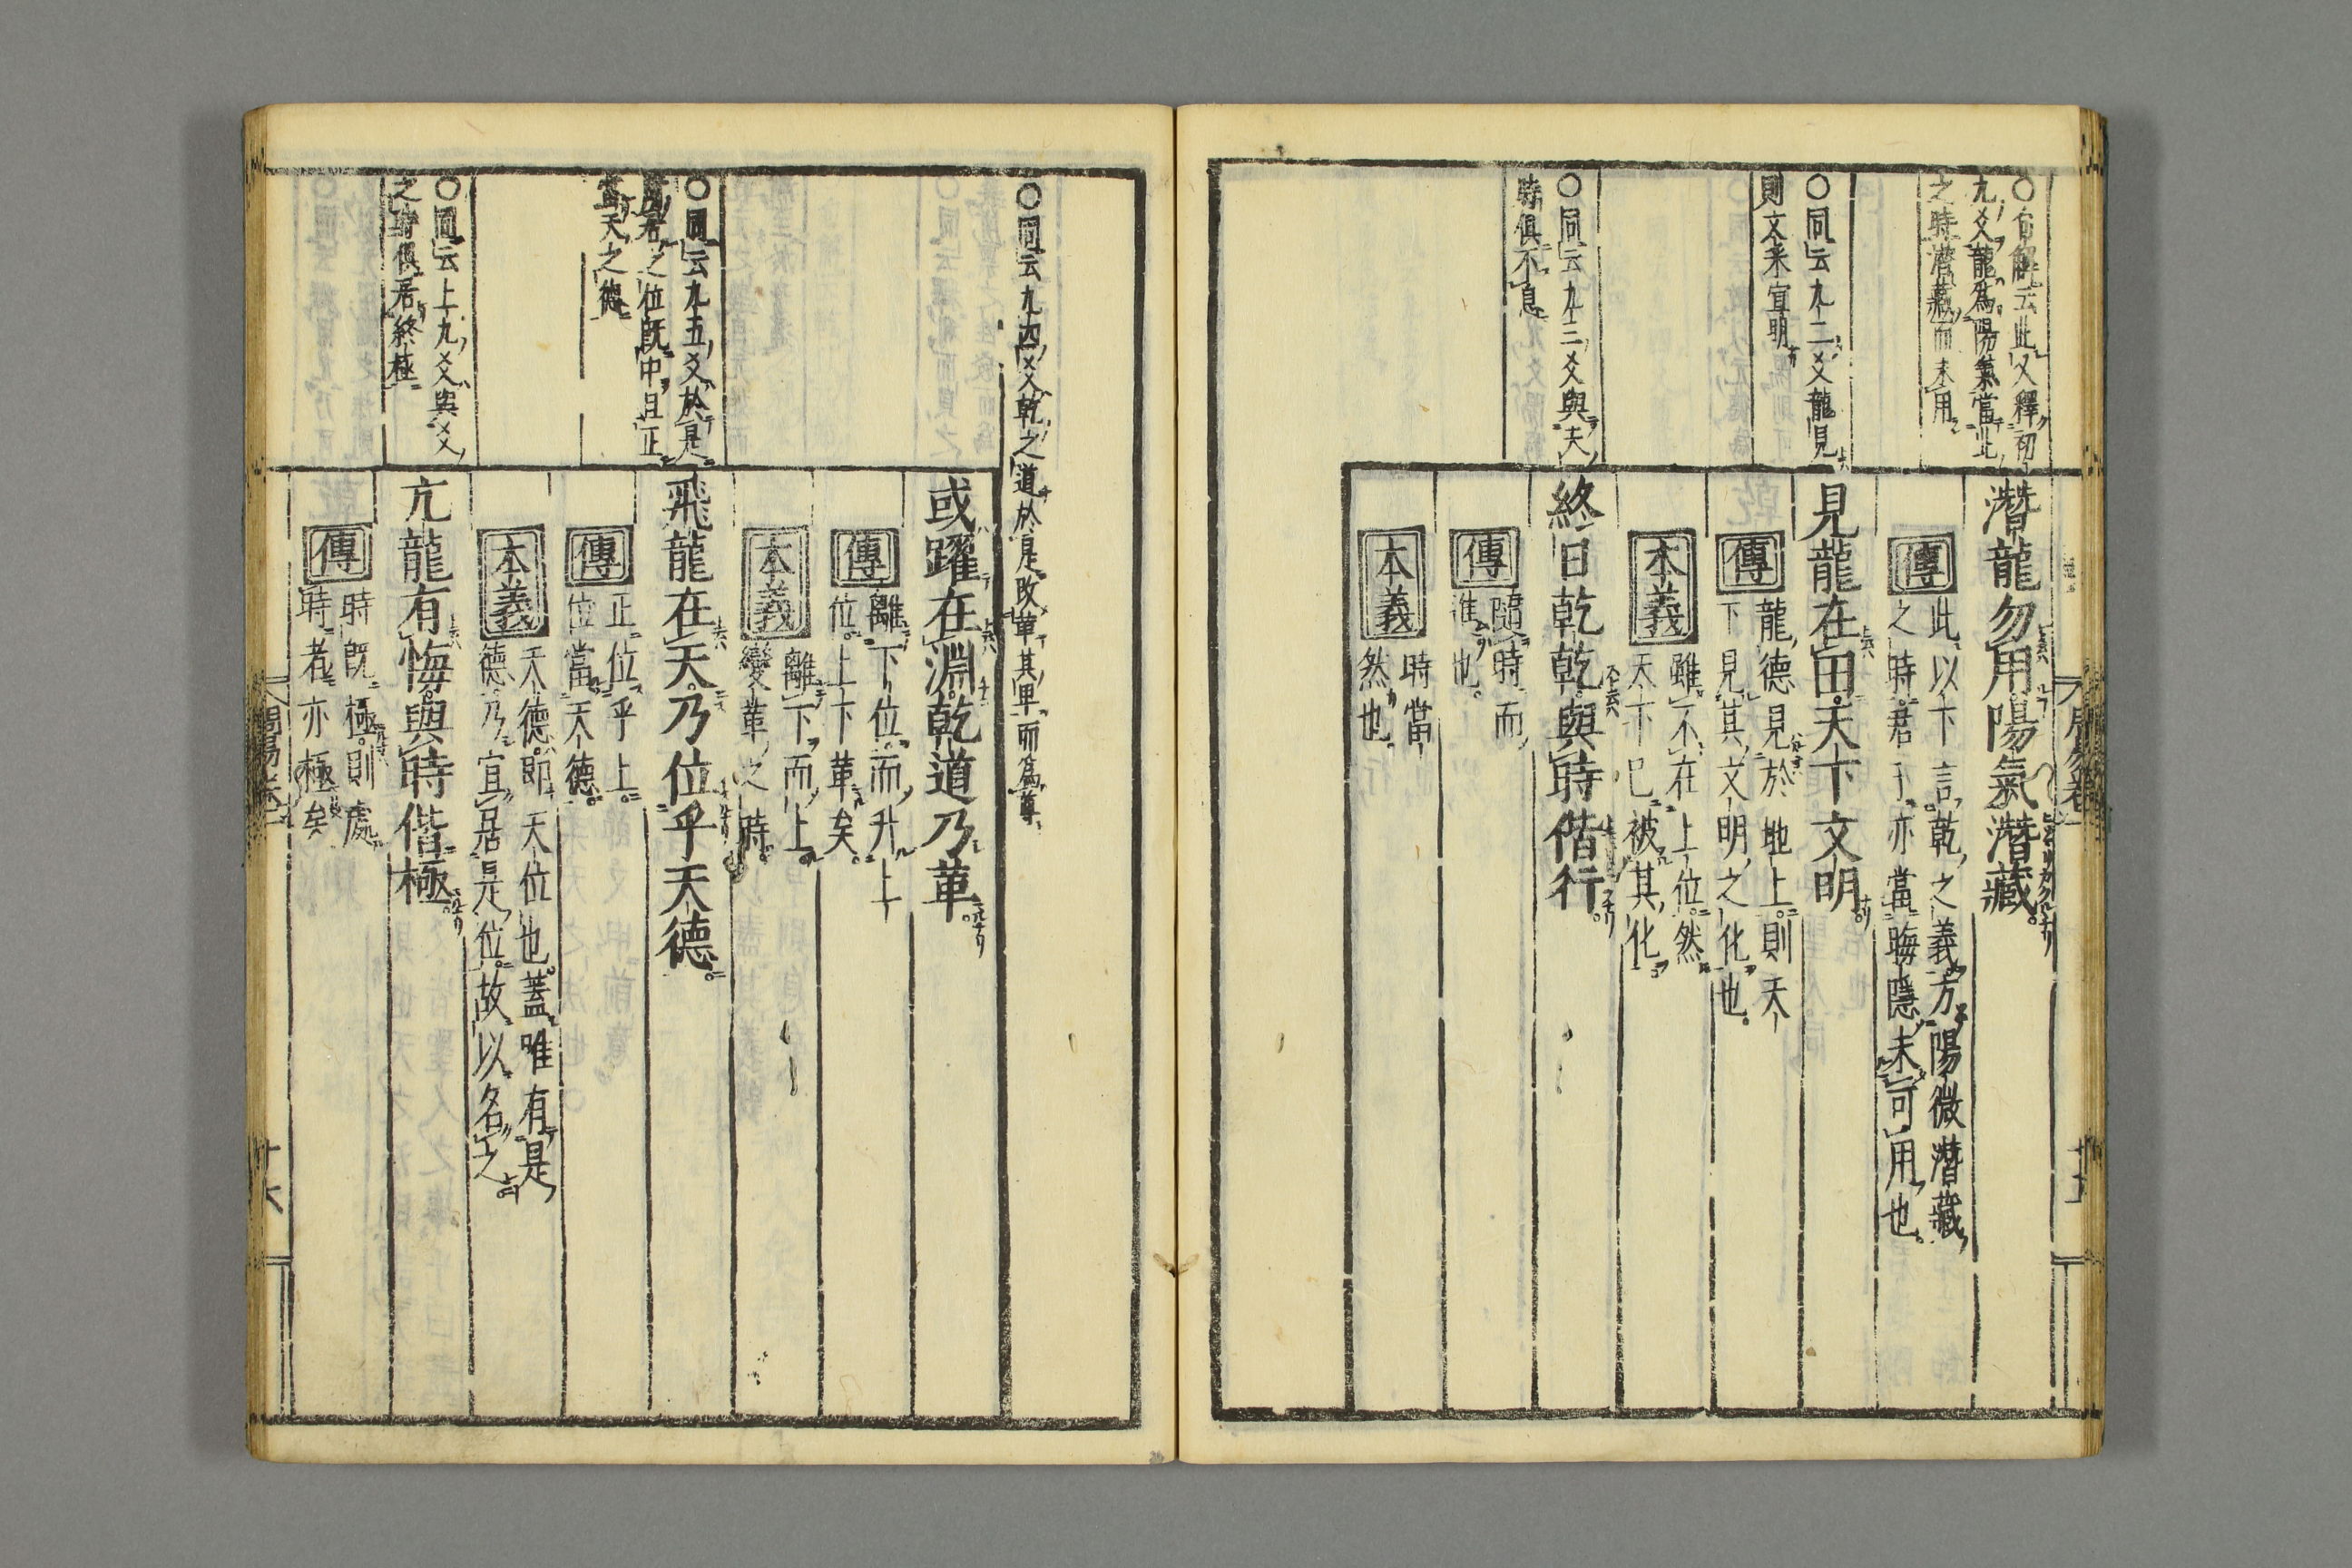 ○旨解云此又釋初
九爻龍爲陽氣當此
之時潛藏而未用
○同云九二爻龍見
則文釆宣明
○同云九三爻與天
時俱不息
潛龍勿用陽氣潛藏
傳
此以下言乾之義方陽微潛藏
之時君子亦當晦隱未可用也
見龍在田天下文明
傳
龍德見於地上則天
下見其文明之化也
本義
雖不在上位然
天下已被其化
終日乾乾與時偕行
傳
隨時而
進也
本義
時當
然也
○同云九四爻乾之道於是改革其卑而爲尊
○同云九五爻於是
居之位旣中且正
當天之德
○同云上九爻與爻
之時俱居終極
或躍在淵乾道乃革
傳
離下位而升上
位上下革矣
本義
離下而上
變革之時
飛龍在天乃位乎天德
傳
正位乎上
位當天德
本義
天德即天位也蓋唯有是
德乃宜居是位故以名之
亢龍有悔與時偕極
傳
時旣極則處
時者亦極矣
周易卷一
十六